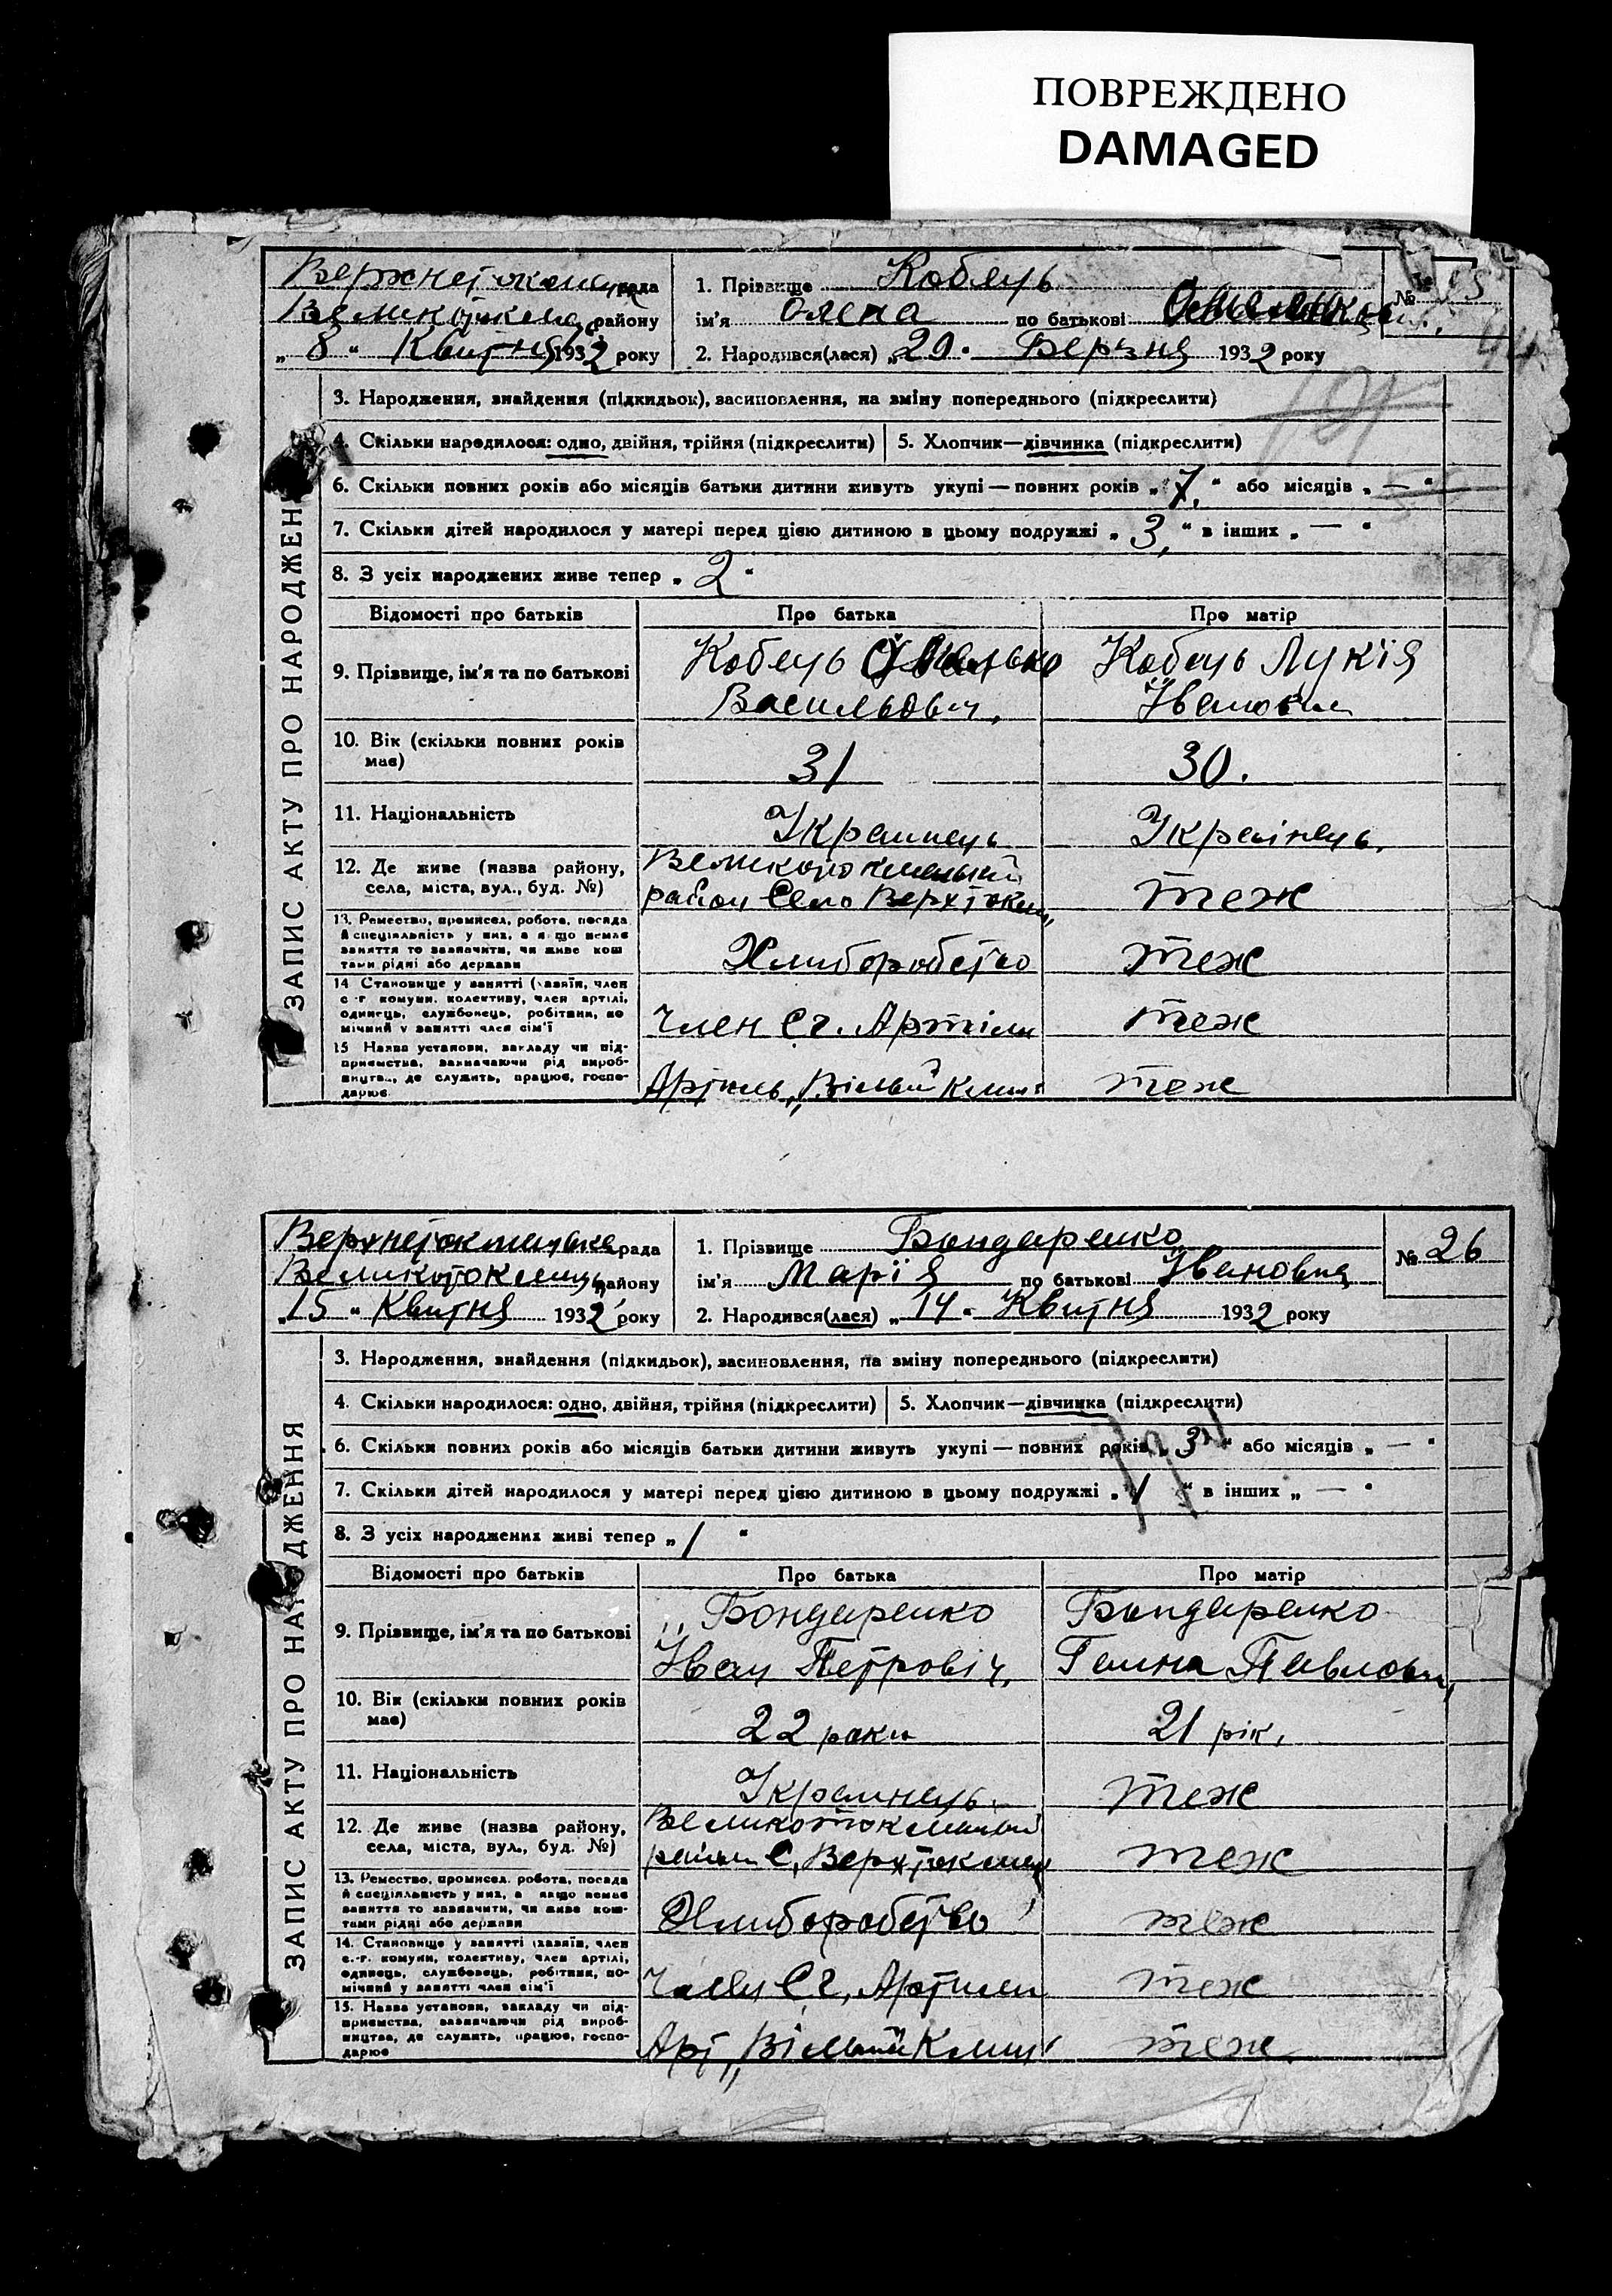 ПОВРЕЖДЕНО
DAMAGED
рада
1. Прізвище Кобець
№
району
ім'я Олена по батькові
„8“ Квитня 1932 року
2. Народився(лася) „29“ Берзня 1932 року
ЗАПИС АКТУ ПРО НАРОДЖЕН
3. Народження, знайдення (підкидьок), засиновлення, на зміну попереднього (підкреслити)
4. Скільки народилося: одно, двійня, трійня (підкреслити)
5. Хлопчик—дівчинка (підкреслити)
6. Скільки повних років або місяців батьки дитини живуть укупі — повних років „7“ або місяців „—“
7. Скільки дітей народилося у матері перед цією дитиною в цьому подружжі „3“ в інших „—“
8. З усіх народжених живе тепер „2“
Відомості про батьків
Про батька
Про матір
9. Прізвище, ім'я та по батькові
Кобець
Васильович,
Кобець Лукія
10. Вік (скільки повних років має)
31
30.
11. Національність
Украинець
Украінець.
12. Де живе (назва району, села, міста, вул., буд. №)
район Село
теж
13. Ремество, промисел, робота, посада й спеціяльність у них, а якщо немає заняття то зазначити, чи живе коштами рідні або держави
Хлиборобство
теж
14 Становище у занятті (хазяїн, член с-г комуни, колективу, член артілі, одинець, службовець, робітник, помічний у занятті член сім'ї
Член Сг. Артіли
теж
15 Назва установи, закладу чи підприємства, зазначаючи рід виробництва, де служить, працює, господарює
Артиль,
теж
рада
1. Прізвище Бондаренко
№ 26
району
ім'я Марія по батькові Івановна
„15“ Квитня 1932 року
2. Народився(лася) „14“ Квитня 1932 року
ЗАПИС АКТУ ПРО НАРОДЖЕННЯ
3. Народження, знайдення (підкидьок), засиновлення, на зміну попереднього (підкреслити)
4. Скільки народилося: одно, двійня, трійня (підкреслити)
5. Хлопчик—дівчинка (підкреслити)
6. Скільки повних років або місяців батьки дитини живуть укупі — повних років „3“ або місяців „—“
7. Скільки дітей народилося у матері перед цією дитиною в цьому подружжі „1“ в інших „—“
8. З усіх народжених живі тепер „1“
Відомості про батьків
Про батька
Про матір
9. Прізвище, ім'я та по батькові
Бондаренко
Іван Петровіч,
Бондаренко
Ганна
10. Вік (скільки повних років має)
22 роки
21 рік,
11. Національність
Украинець
теж
12. Де живе (назва району, села, міста, вул., буд. №)
теж
13. Ремество, промисел, робота, посада й спеціяльність у них, а якщо немає заняття то зазначити, чи живе коштами рідні або держави
Хлиборобство
теж
14. Становище у занятті (хазяїн, член с.-г. комуни, колективу, член артілі, одинець, службовець, робітник, помічний у занятті член сім'ї
Член Сг. Артили
теж
15. Назва установи, закладу чи підприємства, зазначаючи рід виробництва, де служить, працює, господарює
Арт
теж